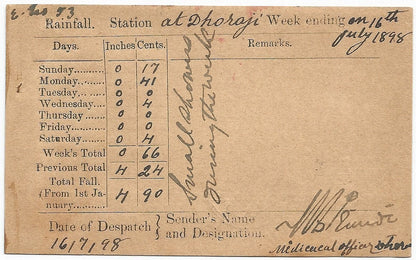 E. No 53
Rainfall. Station at Dhoraji Week ending on 16th
July 1898
Days. Inches Cents. Remarks.
Sunday 0 17
Monday 0 41
Tuesday 0 0
Wednesday 0 4
Thursday 0 0
Friday 0 0
Saturday 0 4
Week's Total 0 66
Previous Total 4 24
Total Fall.
(From 1st Ja-
nuary 4 90
Small showers
during the week
Date of Despatch Sender's Name
16/7/98 and Designation.
officer